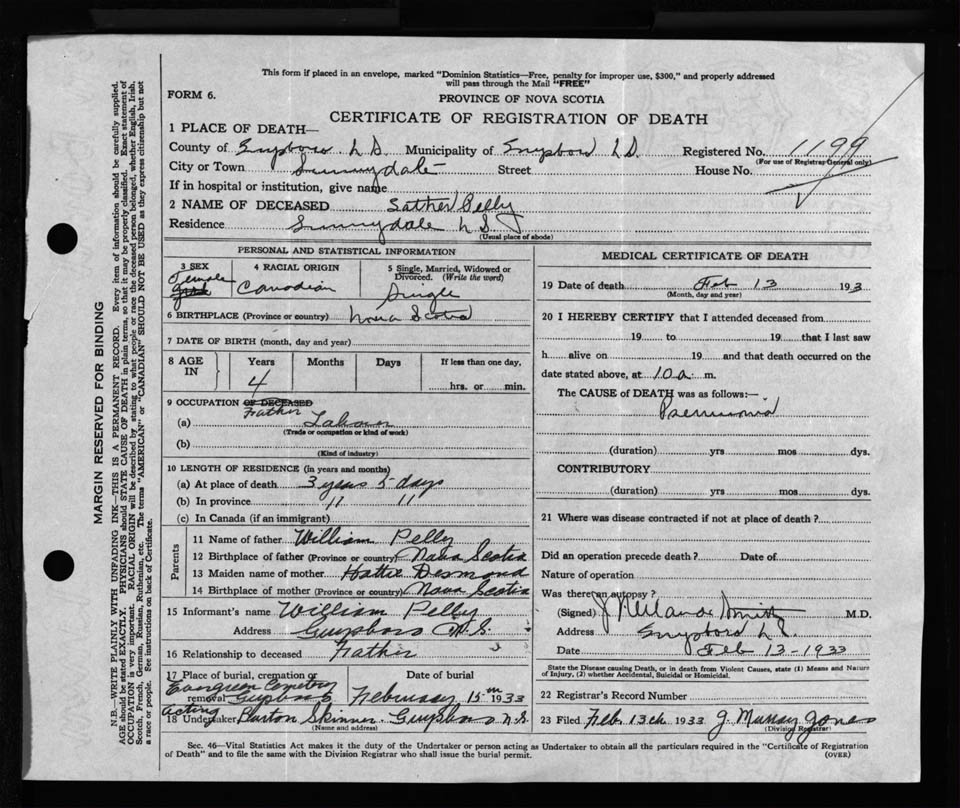 This form if placed in an envelope, marked "Dominion Statistics—Free, penalty for improper use, $300," and properly addressed
will pass through the Mail "FREE"
FORM 6.
PROVINCE OF NOVA SCOTIA
CERTIFICATE OF REGISTRATION OF DEATH
1 PLACE OF DEATH—
County of Guysboro N.S. Municipality of Guysboro N.S. Registered No. 1199
(For use of Registrar General only)
City or Town Sunnydale Street House No.
If in hospital or institution, give name
2 NAME OF DECEASED Pelly
Residence Sunnydale N S
(Usual place of abode)
PERSONAL AND STATISTICAL INFORMATION
3 SEX
Female
4 RACIAL ORIGIN
Canadian
5 Single, Married, Widowed or
Divorced. (Write the word)
Single
6 BIRTHPLACE (Province or country) Nova Scotia
7 DATE OF BIRTH (month, day and year)
8 AGE
IN
Years
4
Months
Days
If less than one day,
hrs. or min.
9 OCCUPATION OF DECEASED
Father
(a) Labour
(Trade or occupation or kind of work)
(b)
(Kind of industry)
10 LENGTH OF RESIDENCE (in years and months)
(a) At place of death 3 years 5 days
(b) In province " "
(c) In Canada (if an immigrant)
Parents
11 Name of father William Pelly
12 Birthplace of father (Province or country) Nova Scotia
13 Maiden name of mother Hattie Desmond
14 Birthplace of mother (Province or country) Nova Scotia
15 Informant's name William Pelly
Address Guysboro N.S.
16 Relationship to deceased Father
17 Place of burial, cremation or
removal
Evergreen Cemetery
Guysboro
Date of burial
February 15th 1933
acting
18 Undertaker Burton Skinner Guysboro N.S.
(Name and address)
MEDICAL CERTIFICATE OF DEATH
19 Date of death Feb 13 193
(Month, day and year)
20 I HEREBY CERTIFY that I attended deceased from
19 to 19 that I last saw
h alive on 19 and that death occurred on the
date stated above, at 10 a. m.
The CAUSE of DEATH was as follows:—
(duration) yrs mos dys.
CONTRIBUTORY
(duration) yrs mos dys.
21 Where was disease contracted if not at place of death?
Did an operation precede death? Date of
Nature of operation
Was there an autopsy?
(Signed) M.D.
Address Guysboro N.S.
Date Feb 13-1933
State the Disease causing Death, or in death from Violent Causes, state (1) Means and Nature
of Injury, (2) whether Accidental, Suicidal or Homicidal.
22 Registrar's Record Number
23 Filed Feb. 13th 1933 J. Murray Jones
(Division Registrar)
Sec. 46—Vital Statistics Act makes it the duty of the Undertaker or person acting as Undertaker to obtain all the particulars required in the "Certificate of Registration
of Death" and to file the same with the Division Registrar who shall issue the burial permit.
(OVER)
MARGIN RESERVED FOR BINDING
N.B.—WRITE PLAINLY WITH UNFADING INK—THIS IS A PERMANENT RECORD. Every item of information should be carefully supplied.
AGE should be stated EXACTLY. PHYSICIANS should STATE CAUSE OF DEATH in plain terms, so that it may be properly classified. Exact statement of
OCCUPATION is very important. RACIAL ORIGIN will be described by stating to what people or race the deceased person belonged, whether English, Irish,
Scotch, French, German, Russian, Ruthenian, etc. The terms "AMERICAN" or "CANADIAN" SHOULD NOT BE USED as they express citizenship but not
a race or people. See instructions on back of Certificate.